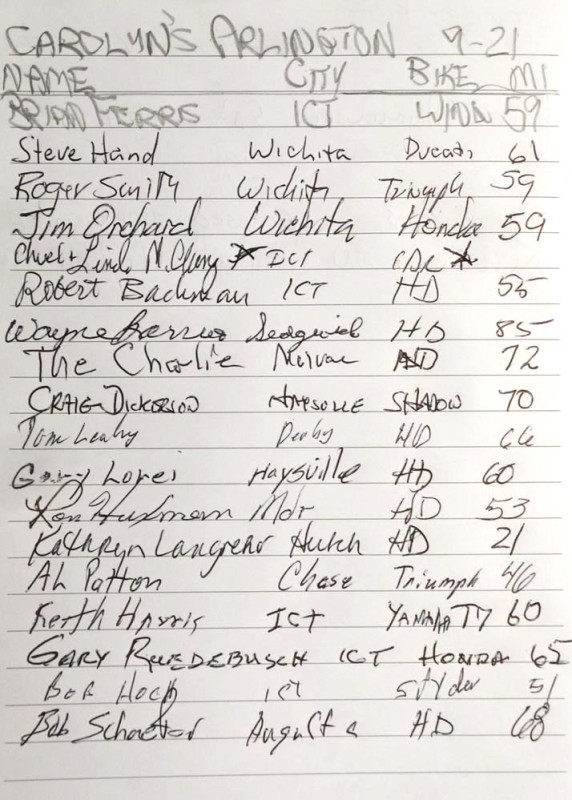 CAROLYN'S ARLINGTON 9-21
NAME CITY BIKE MI
BRIAN FERRIS ICT WIND 59
Steve Hand Wichita Ducati 61
Roger Smith Wichita Triumph 59
Jim Orchard Wichita Honda 59
Linda ICT CAR
Robert Bachman ICT HD 55
Wayne Sedgwick HD 85
The Charlie Mulvane HD 72
CRAIG DICKERSON HAYSVILLE SHADOW 70
Tom Leahy Derby HD 66
Gary Haysville HD 60
HD 53
Kathryn Langrehr Hutch HD 21
AL Patton Chase Triumph 46
Keith Harris ICT YAMAHA 60
GARY RUEDEBUSCH ICT HONDA 65
Bob Hoch ICT 51
Bob Schaefer Augusta HD 68